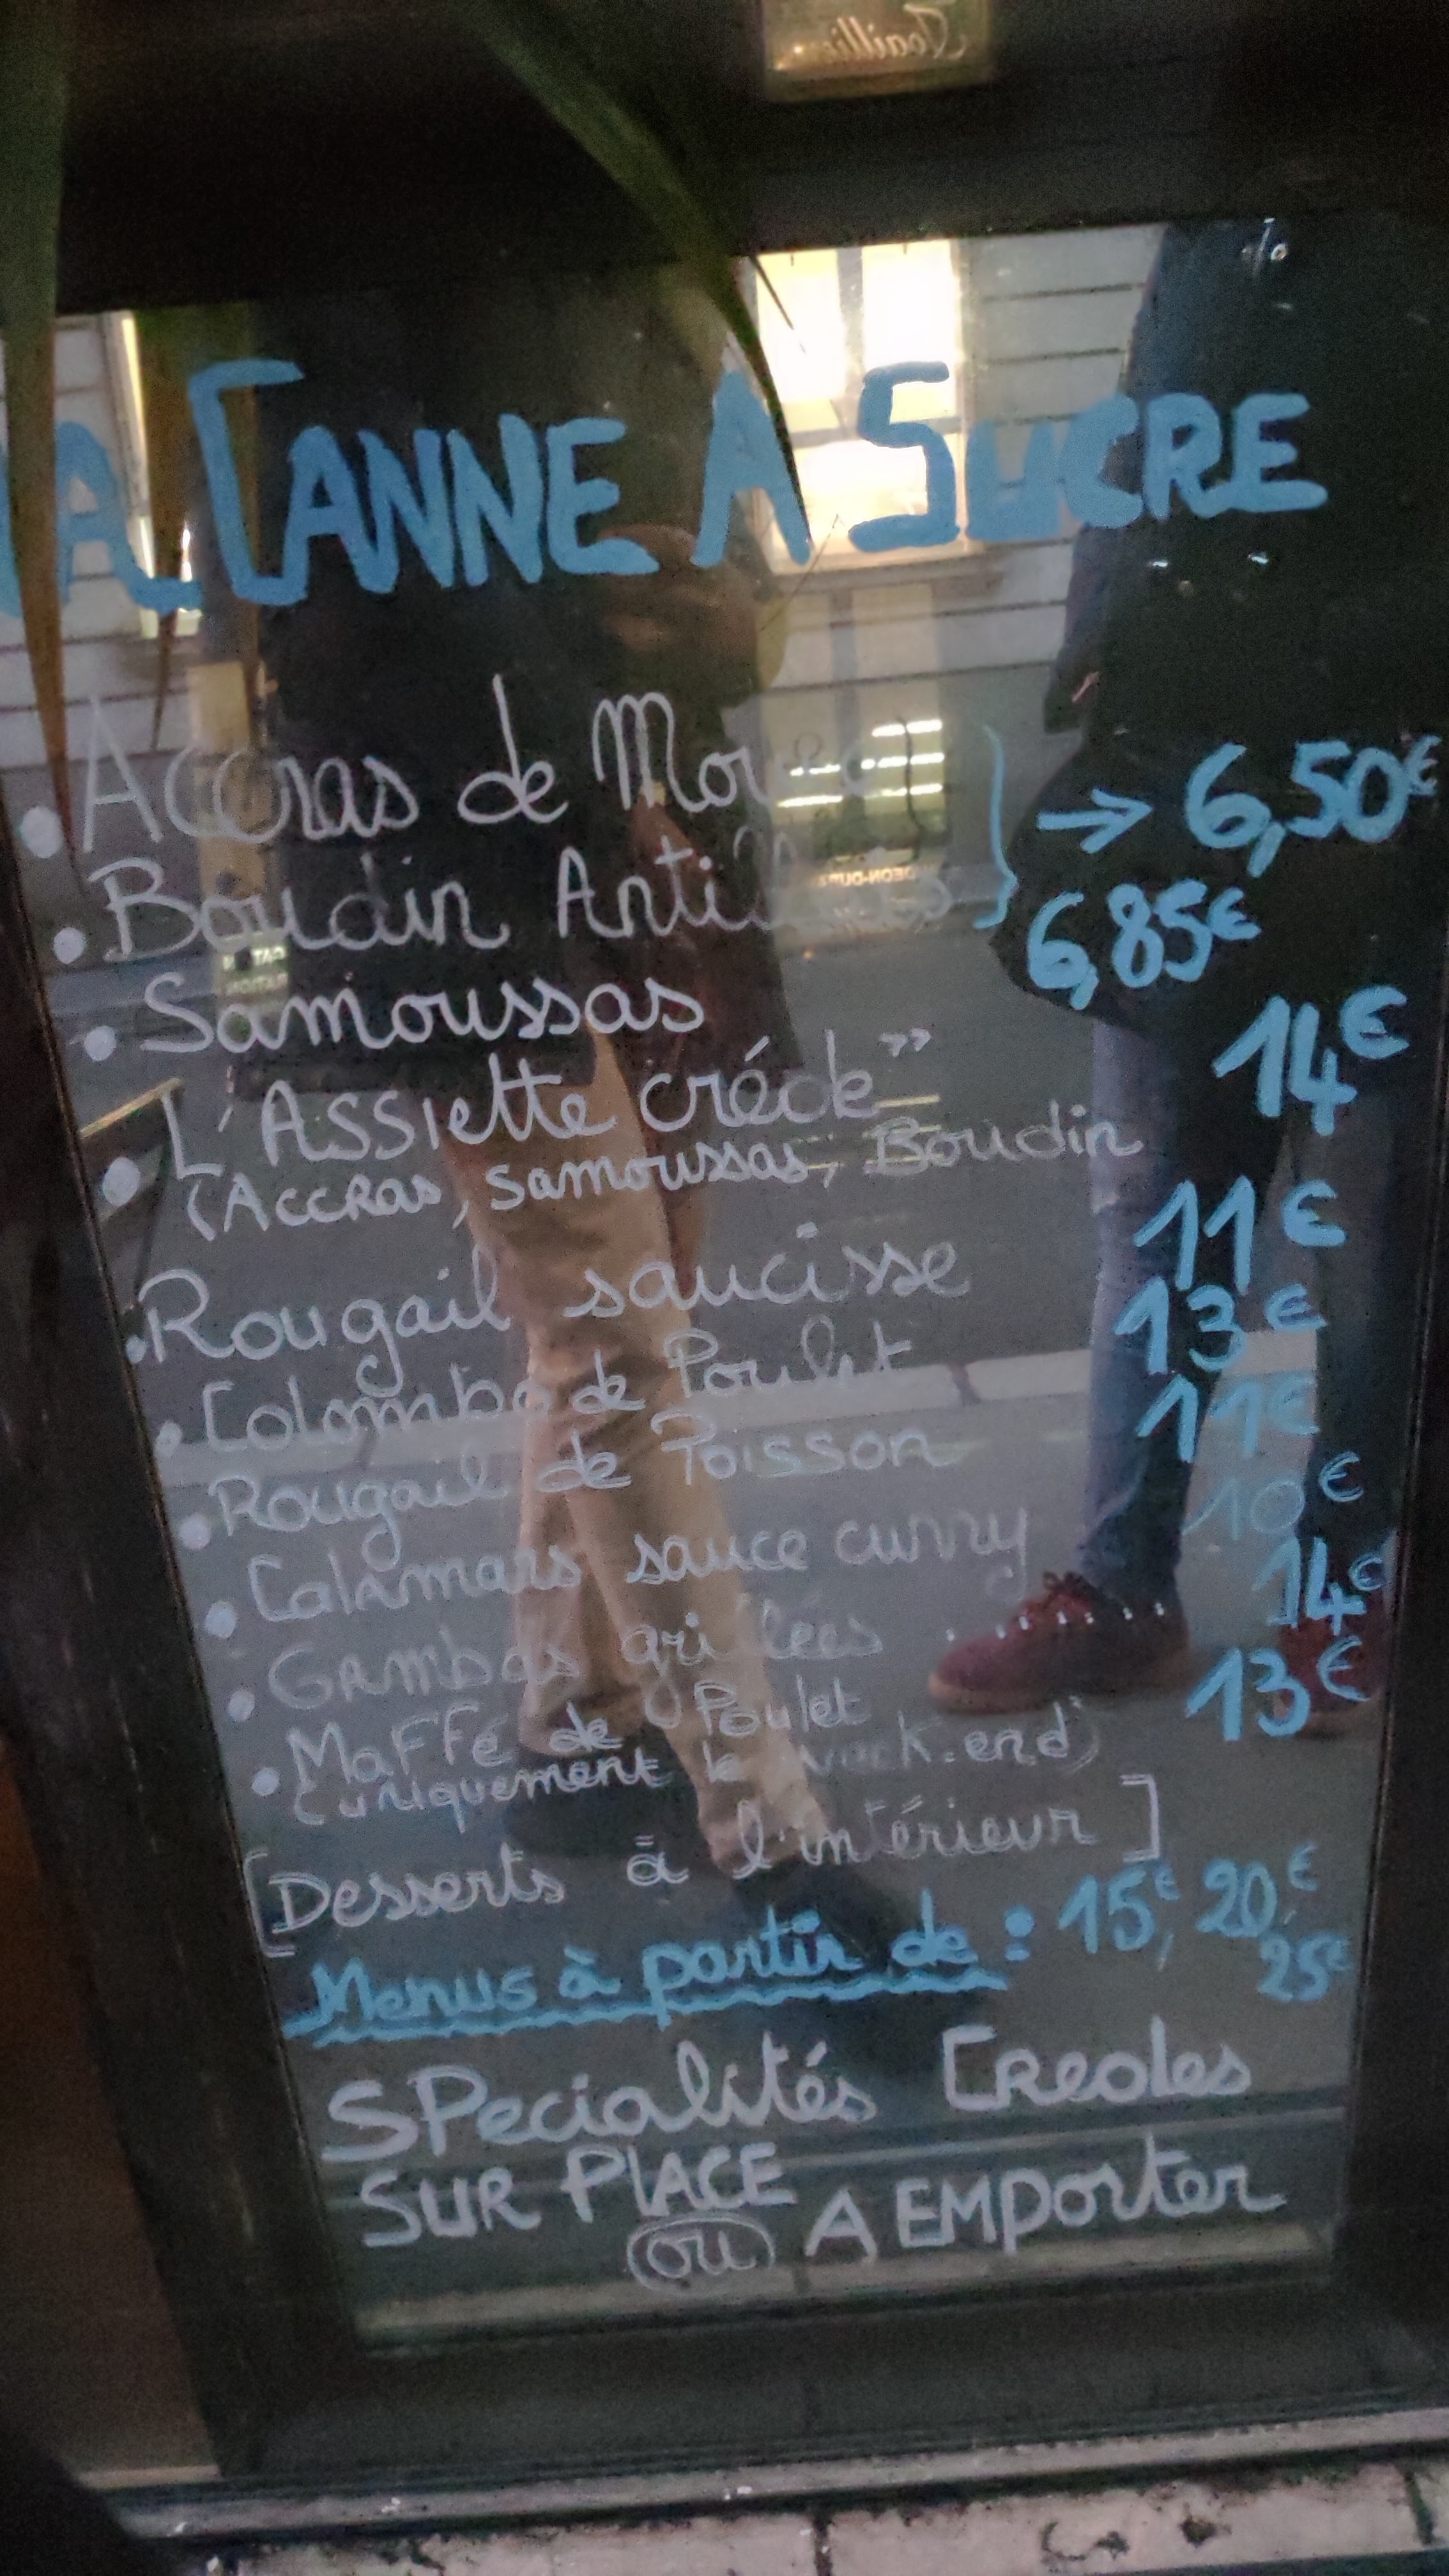 LA CANNE A SUCRE
• Accras de Morue } → 6,50€
• Boudin Antillais
• Samoussas 6,85€
• L'Assiette créole" 14€
(Accras, Samoussas, Boudin
• Rougail saucisse 11€
• Colombo de Poulet 13€
• Rougail de Poisson 11€
• Calamars sauce curry 10€
• Gambas grillées .... 14€
• Maffé de Poulet 13€
(uniquement le week-end)
[Desserts à l'intérieur]
Menus à partir de : 15€, 20€,
25€
SPecialités Creoles
SUR PLACE
ou A EMPorter